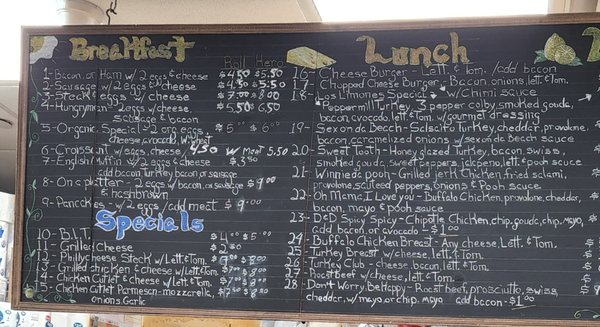 Breakfast
Roll Hero
1- Bacon or Ham w/ 2 eggs & cheese $4.50 $5.50
2- Sausage w/ 2 eggs & cheese $4.50 $5.50
3- Steak eggs w/ cheese $7.00 $8.00
4- Hungryman eggs w/ cheese $5.50 $6.50
sausage & bacon
5- Organic Special - 2 org eggs $5.00 $6.00
cheese, avocado, w/
6- Croissant w/ eggs, cheese 4.50 w/ meat 5.50
7- English Muffin w/ 2 eggs & cheese $3.50
add bacon Turkey bacon or sausage
8- On a platter - 2 eggs w/ bacon, or sausage $9.00
& hashbrown
9- Pancakes - w/ 2 eggs /add meat $9.00
Specials
10- B.L.T. $4.00 $5.00
11- Grilled Cheese
12- Philly cheese Steak w/ Lett. & Tom.
13- Grilled chicken & cheese w/ Lett. & Tom.
14- Chicken Cutlet & cheese w/ Lett. & Tom.
15- Chicken Cutlet Parmesan - mozzarella,
onions, Garlic
Lunch
16- Cheese Burger - Lett. & Tom. /add bacon
17- Chopped Cheese Burger - Bacon onions, lett. & Tom.
18- Las Limones Special w/ Chimi sauce
Peppermill Turkey, 3 pepper colby, smoked gouda,
bacon, avocado, lett. & Tom. w/ gourmet dressing
19- Sex on da Beach - Salsalito Turkey, cheddar, provolone,
bacon, carameized onions w/ sex on de Beach sauce
20- Sweet Tooth - Honey glazed Turkey, bacon, swiss,
smoked gouda, sweet peppers, jalapeno, lett. & pooh sauce
21- Winnie da pooh - Grilled jerk Chicken, fried salami,
provolone, sauteed peppers, onions & Pooh sauce
22- Oh Mama I Love you - Buffalo Chicken, provolone, cheddar,
bacon, mayo & pooh sauce
23- D&D Spicy Spicy - Chipotle Chicken, chip. gouda, chip. mayo,
add bacon, or avocado - $1.00
24- Buffalo Chicken Breast - Any cheese, Lett. & Tom.
25- Turkey Breast w/ cheese, lett. & Tom.
26- Turkey Club - cheese, bacon, lett. & Tom.
27- Roast Beef w/ cheese, lett. & Tom.
28- Don't Worry, Be Happy - Roast Beef, prosciutto, swiss,
cheddar, w/ mayo, or chip. mayo add bacon - $1.00